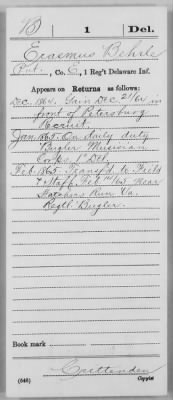 B | 1 | Del.
Erasmus Behrle
Pvt., Co. E, 1 Reg't Delaware Inf.
Appears on Returns as follows:
Dec. 1864. Gain Dec 24/64 in
front of Petersburg
Recruit.
Jan. 1865. On daily duty
Bugler Musician
Corps 1" Del.
Feb. 1865. Transf'd to Field
& Staff Feb 1"/65 Near
Hatchers Run Va.
Regtl Bugler.
Book mark
Crittenden
(546) Copyist.